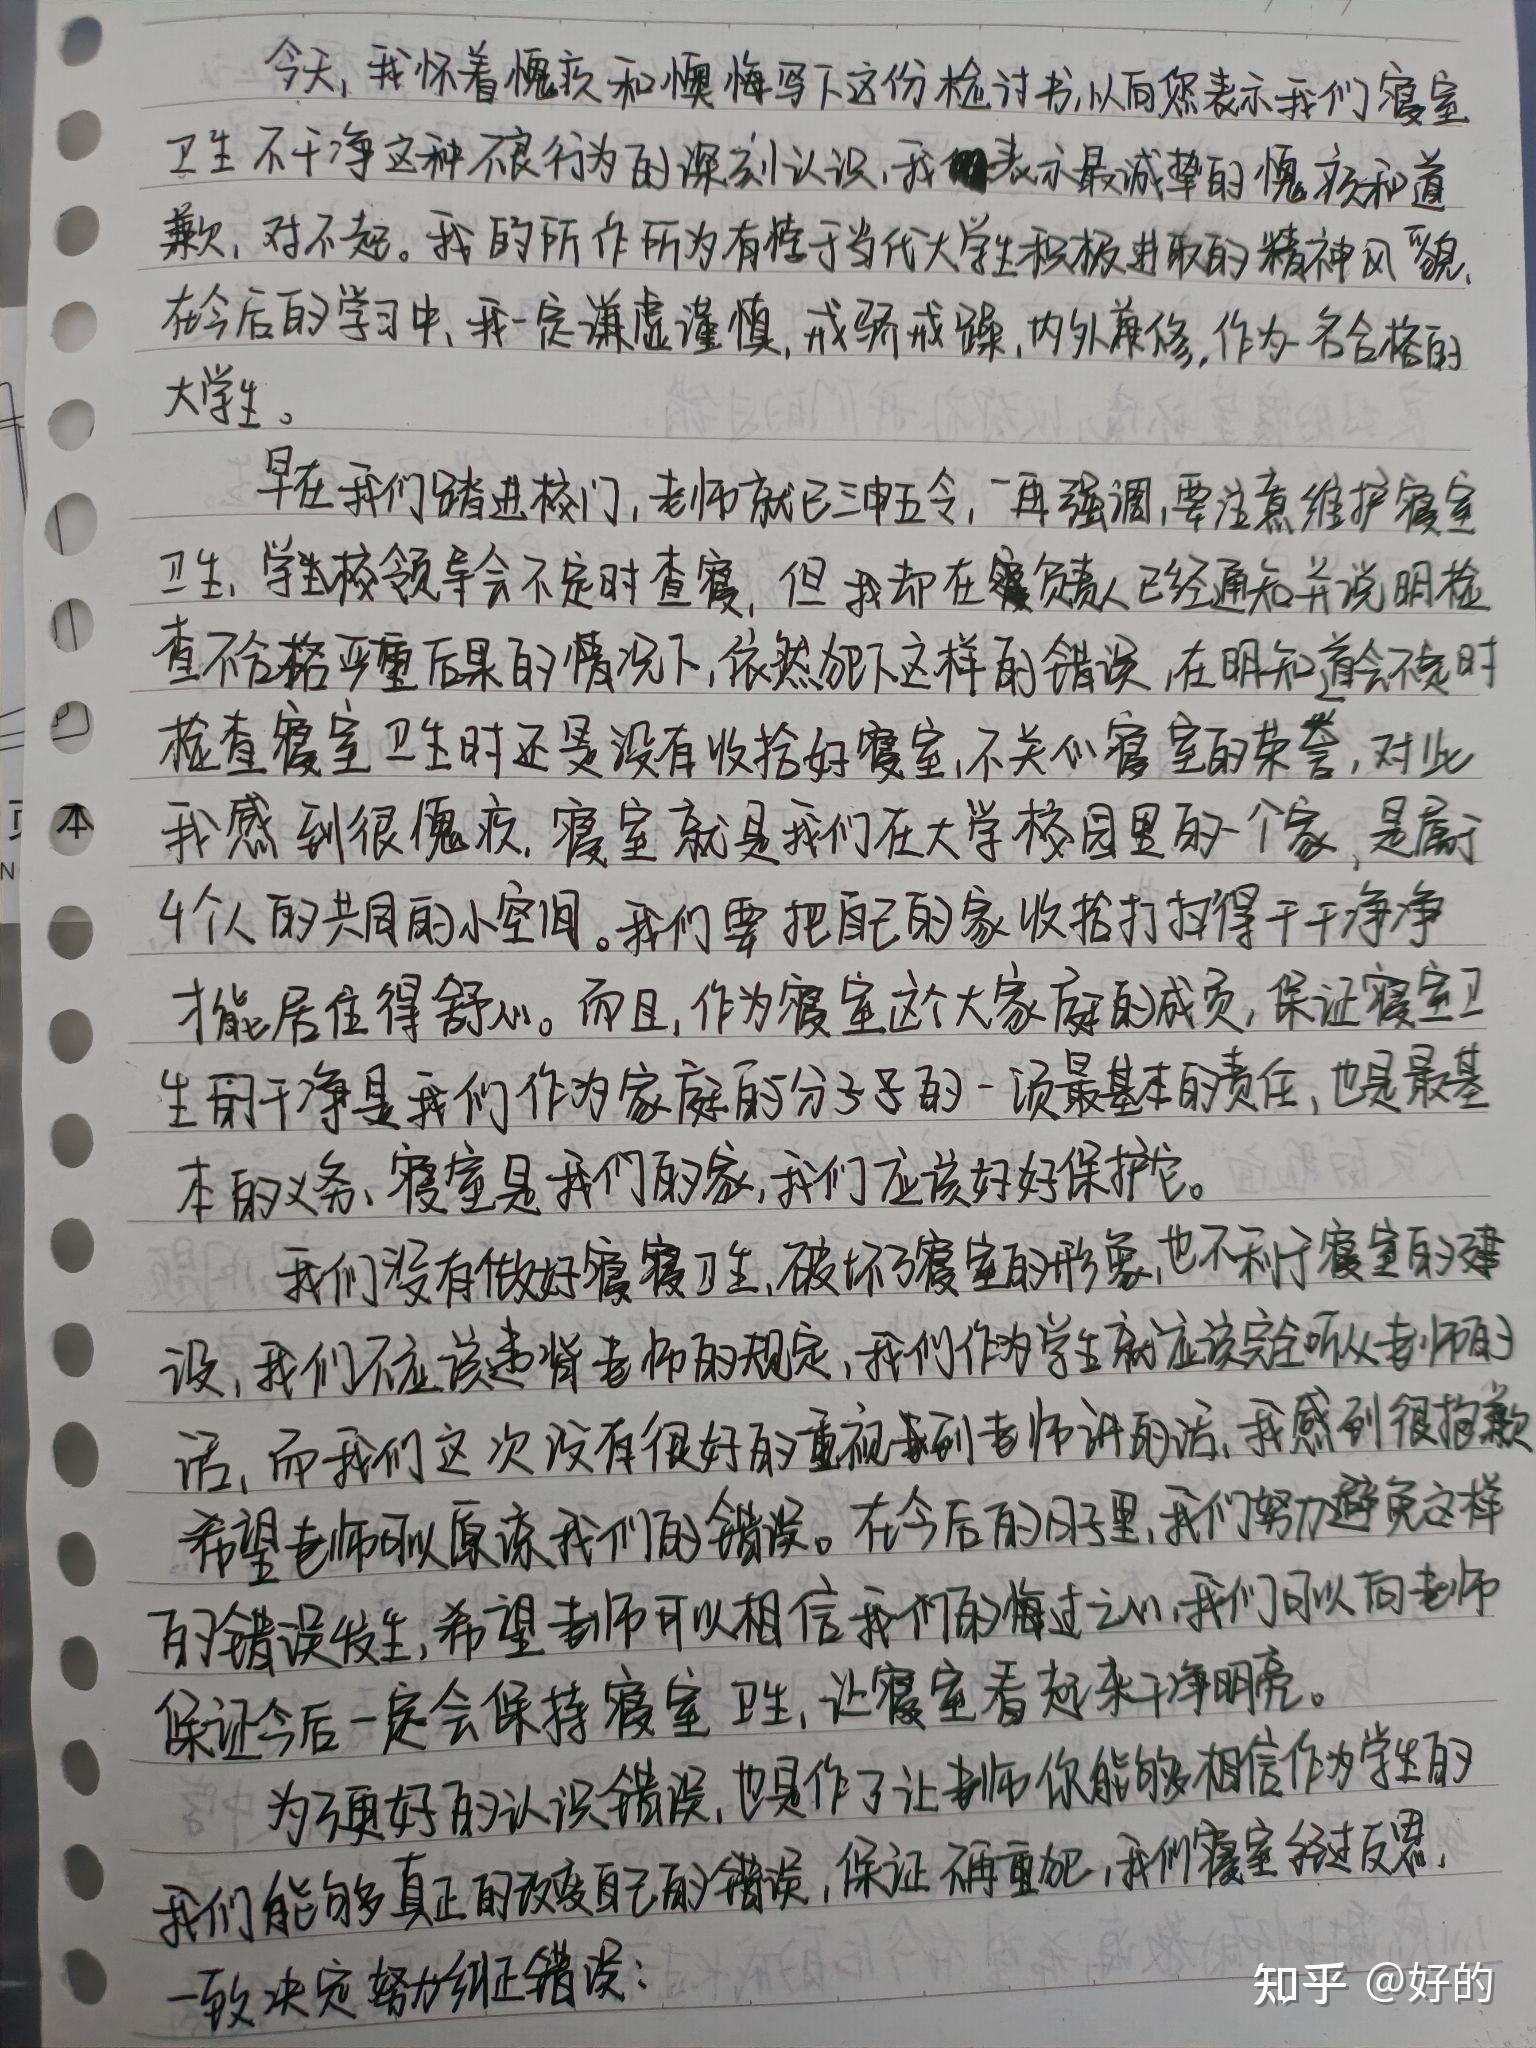 今天,我怀着愧疚和懊悔写下这份检讨书,以向您表示我们寝室
卫生不干净这种不良行为的深刻认识,我表示最诚挚的愧疚和道
歉,对不起。我的所作所为有悖于当代大学生积极进取的精神风貌,
在今后的学习中,我一定谦虚谨慎,戒骄戒躁,内外兼修,作为一名合格的
大学生。
早在我们踏进校门,老师就已三申五令,一再强调,要注意维护寝室
卫生,学校领导会不定时查寝,但我却在负责人已经通知并说明检
查不合格严重后果的情况下,依然犯下这样的错误,在明知道会不定时
检查寝室卫生时还是没有收拾好寝室,不关心寝室的荣誉,对此
我感到很愧疚,寝室就是我们在大学校园里的一个家,是属于
4个人的共同的小空间。我们要把自己的家收拾打扫得干干净净
才能居住得舒心。而且,作为寝室这个大家庭的成员,保证寝室卫
生的干净是我们作为家庭的分子子的一项最基本的责任,也是最基
本的义务、寝室是我们的家,我们应该好好保护它。
我们没有做好寝寝卫生,破坏了寝室的形象,也不利于寝室的建
设,我们不应该违背老师的规定,我们作为学生就应该完全听从老师的
话,而我们这次没有很好的重视到老师讲的话,我感到很抱歉
希望老师可以原谅我们的错误。在今后的日子里,我们努力避免这样
的错误发生,希望老师可以相信我们的悔过之心,我们可以向老师
保证今后一定会保持寝室卫生,让寝室看起来干净明亮。
为了更好的认识错误,也是作了让老师你能够相信作为学生的
我们能够真正的改变自己的错误,保证不再重犯,我们寝室经过反思,
一致决定努力纠正错误:
本
知乎 @好的